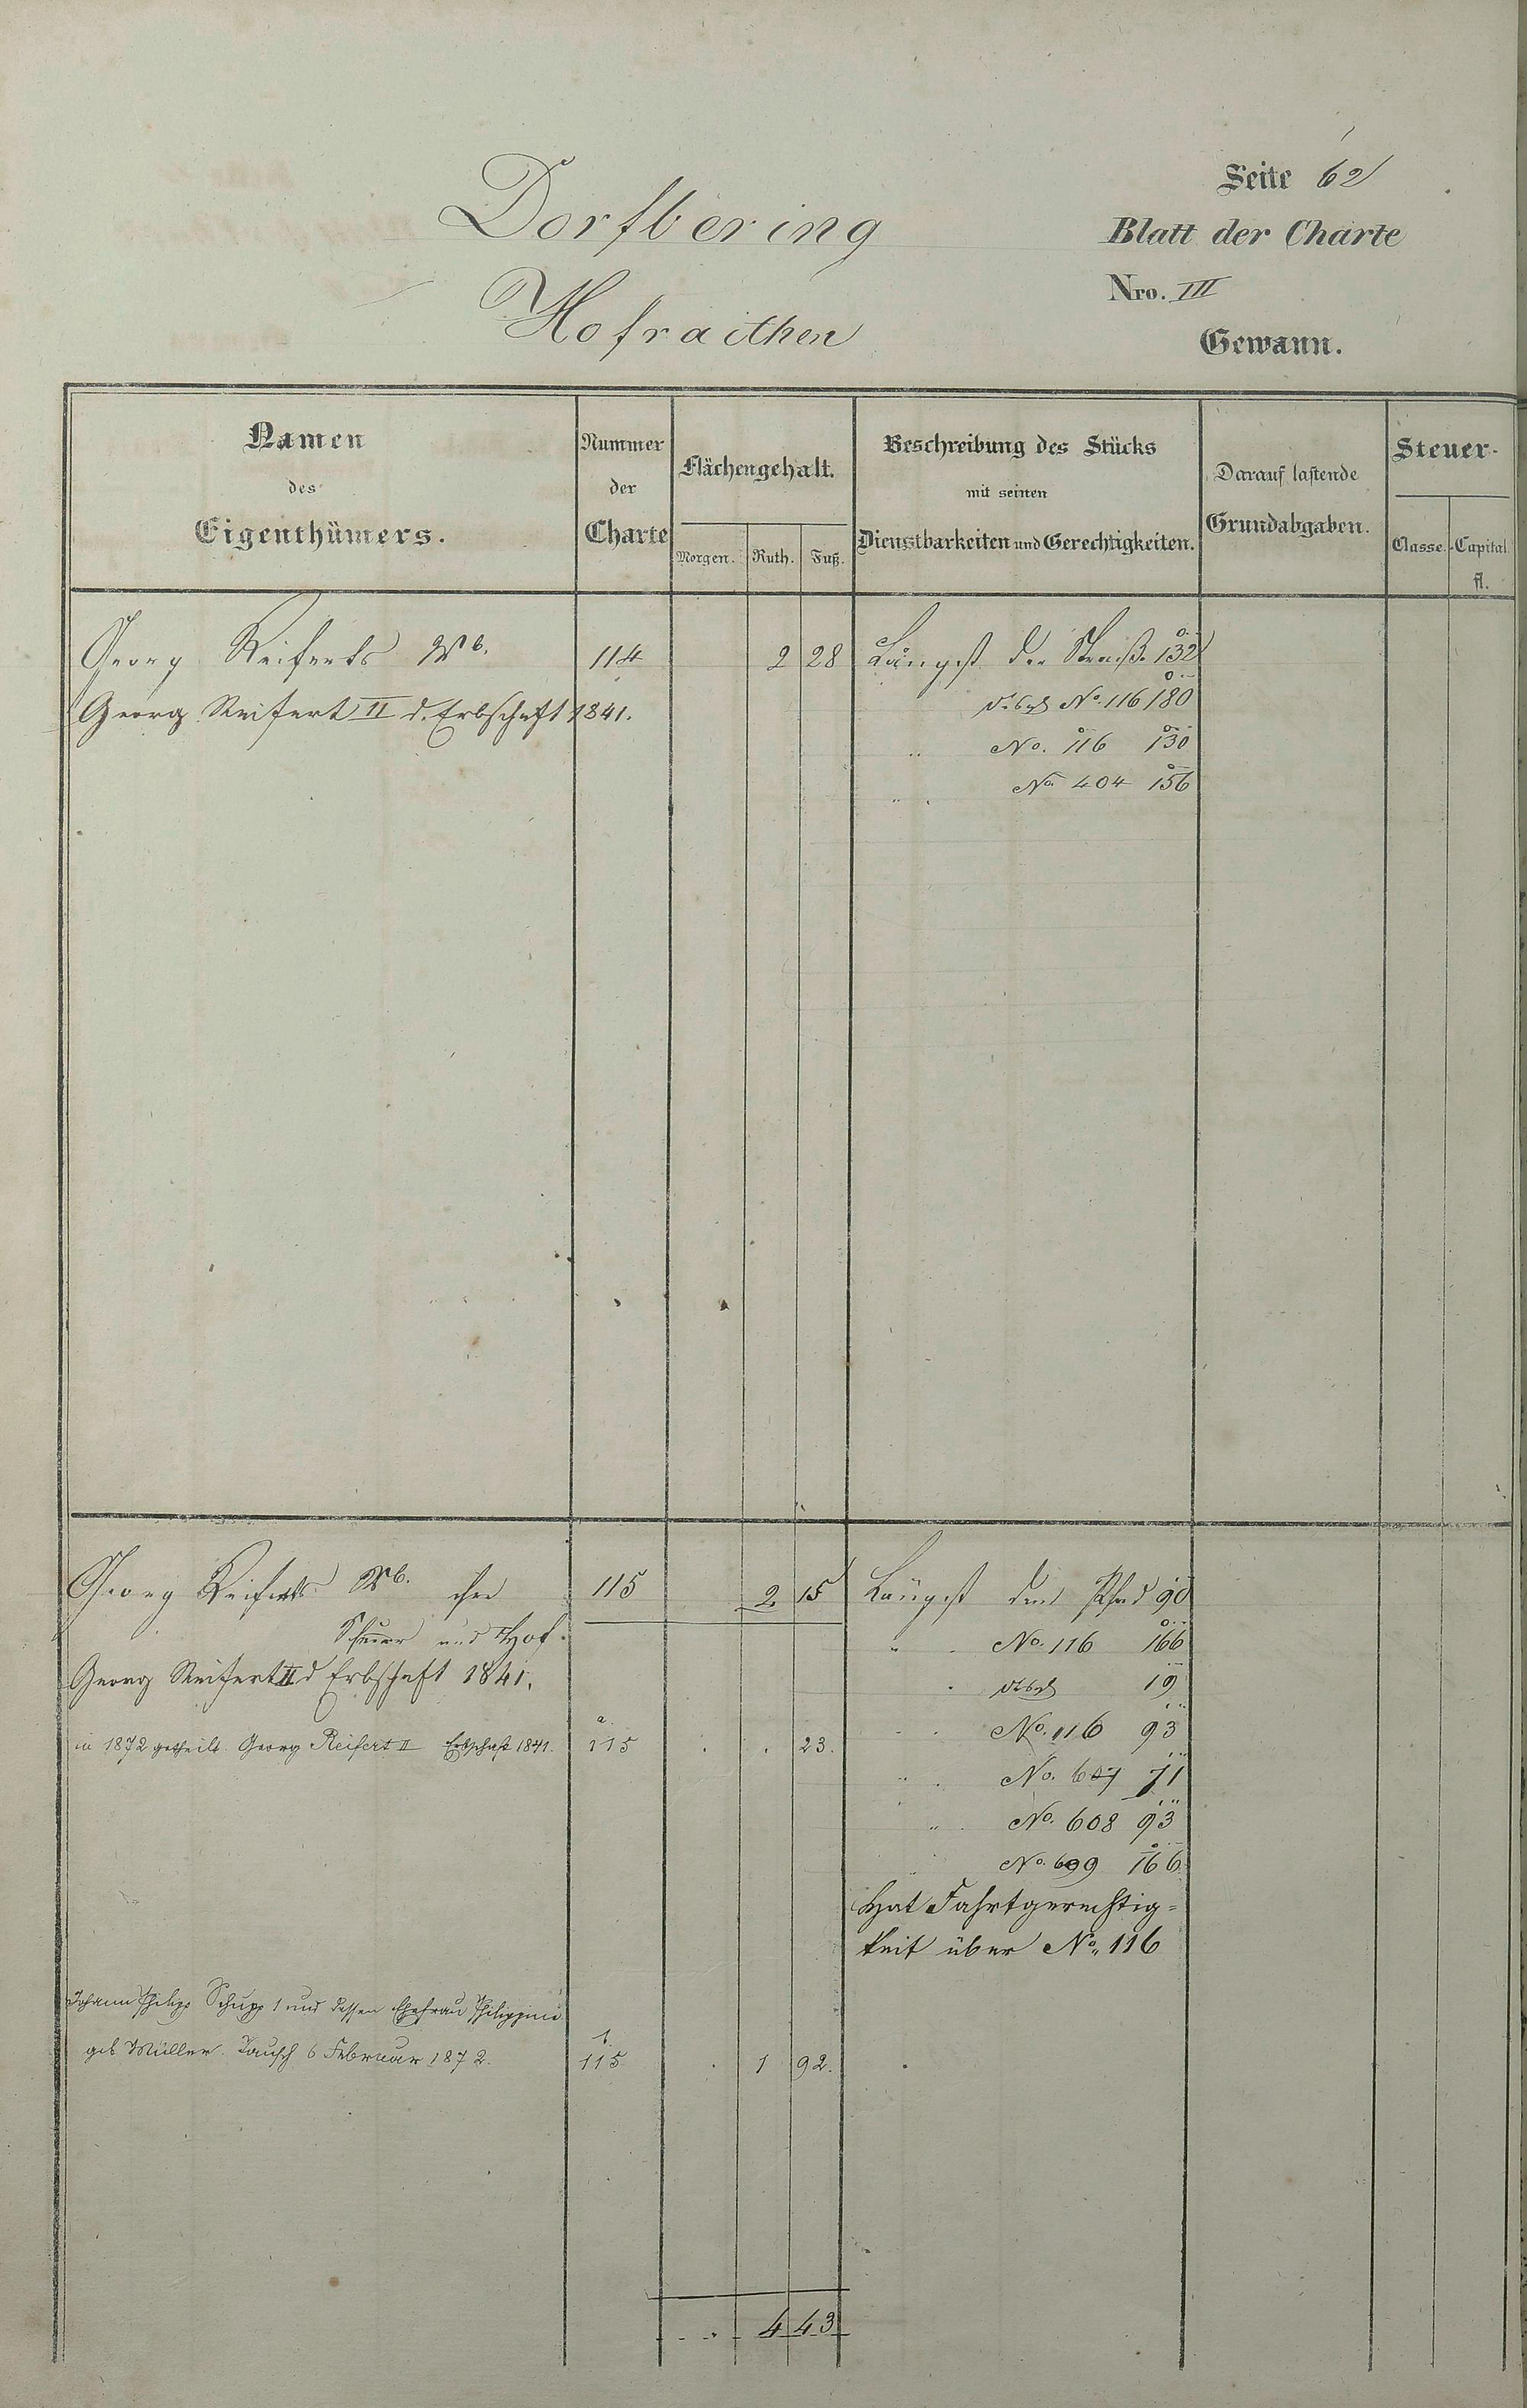 Seite 62
Dorfbering
Blatt der Charte
Nro. III
Hofraithen
Gewann.
Namen des Eigenthümers.
Nummer der Charte
Flächengehalt.
Morgen. Ruth. Fuß.
Beschreibung des Stücks mit seinen Dienstbarkeiten und Gerechtigkeiten.
Darauf lastende Grundabgaben.
Steuer-
Classe. Capital. fl.
Georg Reiferts Wb. 114 2 28 Längst der Straße 132
Georg Reifert II d. Erbschaft 1841. No. 116 180
" No. 116 130
" No 404 156
Georg Reiferts Wb. 115 2. 15 Längst dem Pfad 90
Scheuer und Hof. " No. 116 166
Georg Reifert II d Erbschaft 1841. 19
No. 116 93
in 1872 getheilt. Georg Reifert II Erbschaft 1841. 115 a 23.
" No. 607 71
" No. 608 93
No. 609 166
Hat Fahrtgerechtig=
keit über No. 116
Johann Philipp Schupp 1 und dessen Ehefrau Philippine
geb Müller. Tausch 6 Februar 1872. 115 b. 1 92.
4 43